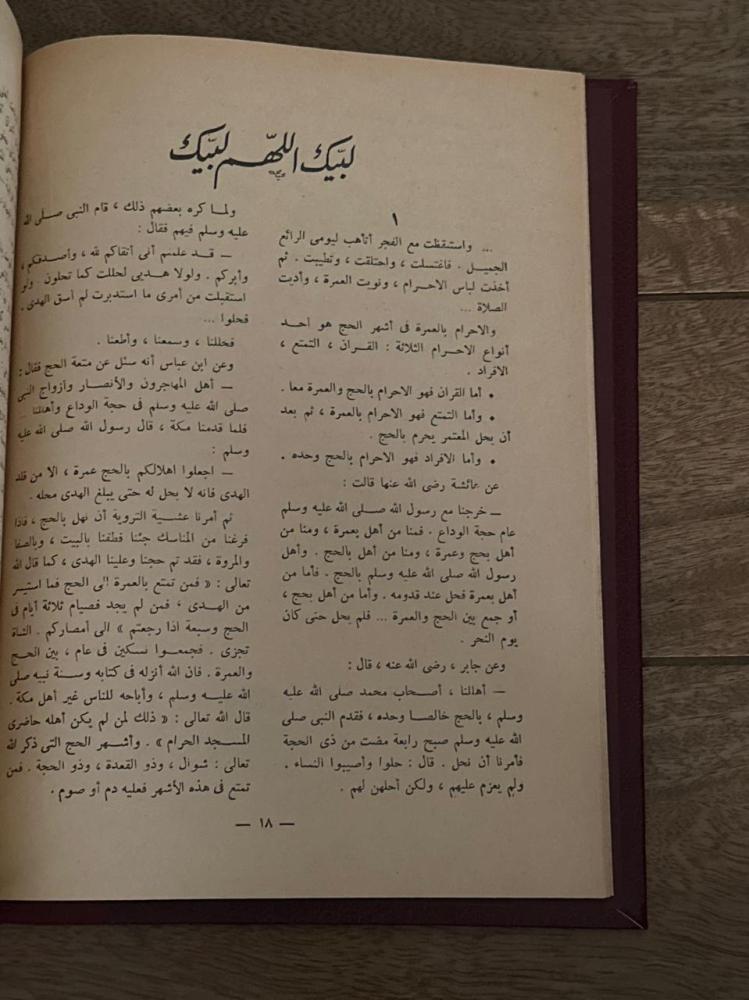 لبيّك اللهمّ لبيّك
١
... واستيقظت مع الفجر أتأهب ليومى الرائع
الجميل . فاغتسلت ، واحتلقت ، وتطيبت . ثم
أخذت لباس الاحرام ، ونويت العمرة ، وأديت
الصلاة ...
والاحرام بالعمرة فى أشهر الحج هو احد
أنواع الاحرام الثلاثة : القران ، التمتع ،
الافراد .
• أما القران فهو الاحرام بالحج والعمرة معا .
• وأما التمتع فهو الاحرام بالعمرة ، ثم بعد
أن يحل المعتمر يحرم بالحج .
• وأما الافراد فهو الاحرام بالحج وحده .
عن عائشة رضى الله عنها قالت :
— خرجنا مع رسول الله صلى الله عليه وسلم
عام حجة الوداع . فمنا من أهل بعمرة ، ومنا من
أهل بحج وعمرة ، ومنا من أهل بالحج . وأهل
رسول الله صلى الله عليه وسلم بالحج . فأما من
أهل بعمرة فحل عند قدومه . وأما من أهل بحج ،
أو جمع بين الحج والعمرة ... فلم يحل حتى كان
يوم النحر .
وعن جابر ، رضى الله عنه ، قال :
— أهللنا ، أصحاب محمد صلى الله عليه
وسلم ، بالحج خالصا وحده ، فقدم النبى صلى
الله عليه وسلم صبح رابعة مضت من ذى الحجة
فأمرنا أن نحل . قال : حلوا وأصيبوا النساء .
ولم يعزم عليهم ، ولكن أحلهن لهم .
ولما كره بعضهم ذلك ، قام النبى صلى الله
عليه وسلم فيهم فقال :
— قد علمتم أنى أتقاكم لله ، وأصدقكم ،
وأبركم . ولولا هديى لحللت كما تحلون . ولو
استقبلت من أمرى ما استدبرت لم أسق الهدى .
فحلوا ...
فحللنا ، وسمعنا ، وأطعنا .
وعن ابن عباس أنه سئل عن متعة الحج فقال :
— أهل المهاجرون والأنصار وأزواج النبى
صلى الله عليه وسلم فى حجة الوداع وأهللنا ...
فلما قدمنا مكة ، قال رسول الله صلى الله عليه
وسلم :
— اجعلوا اهلالكم بالحج عمرة ، الا من قلد
الهدى فانه لا يحل له حتى يبلغ الهدى محله .
ثم أمرنا عشية التروية أن نهل بالحج ، فاذا
فرغنا من المناسك جئنا فطفنا بالبيت ، وبالصفا
والمروة ، فقد تم حجنا وعلينا الهدى ، كما قال الله
تعالى : « فمن تمتع بالعمرة الى الحج فما استيسر
من الهدى ، فمن لم يجد فصيام ثلاثة أيام فى
الحج وسبعة اذا رجعتم » الى أمصاركم . الشاة
تجزى . فجمعوا نسكين فى عام ، بين الحج
والعمرة . فان الله أنزله فى كتابه وسنة نبيه صلى
الله عليه وسلم ، وأباحه للناس غير أهل مكة .
قال الله تعالى : « ذلك لمن لم يكن أهله حاضرى
المسجد الحرام » . وأشهر الحج التى ذكر الله
تعالى : شوال ، وذو القعدة ، وذو الحجة . فمن
تمتع فى هذه الأشهر فعليه دم أو صوم .
— ١٨ —